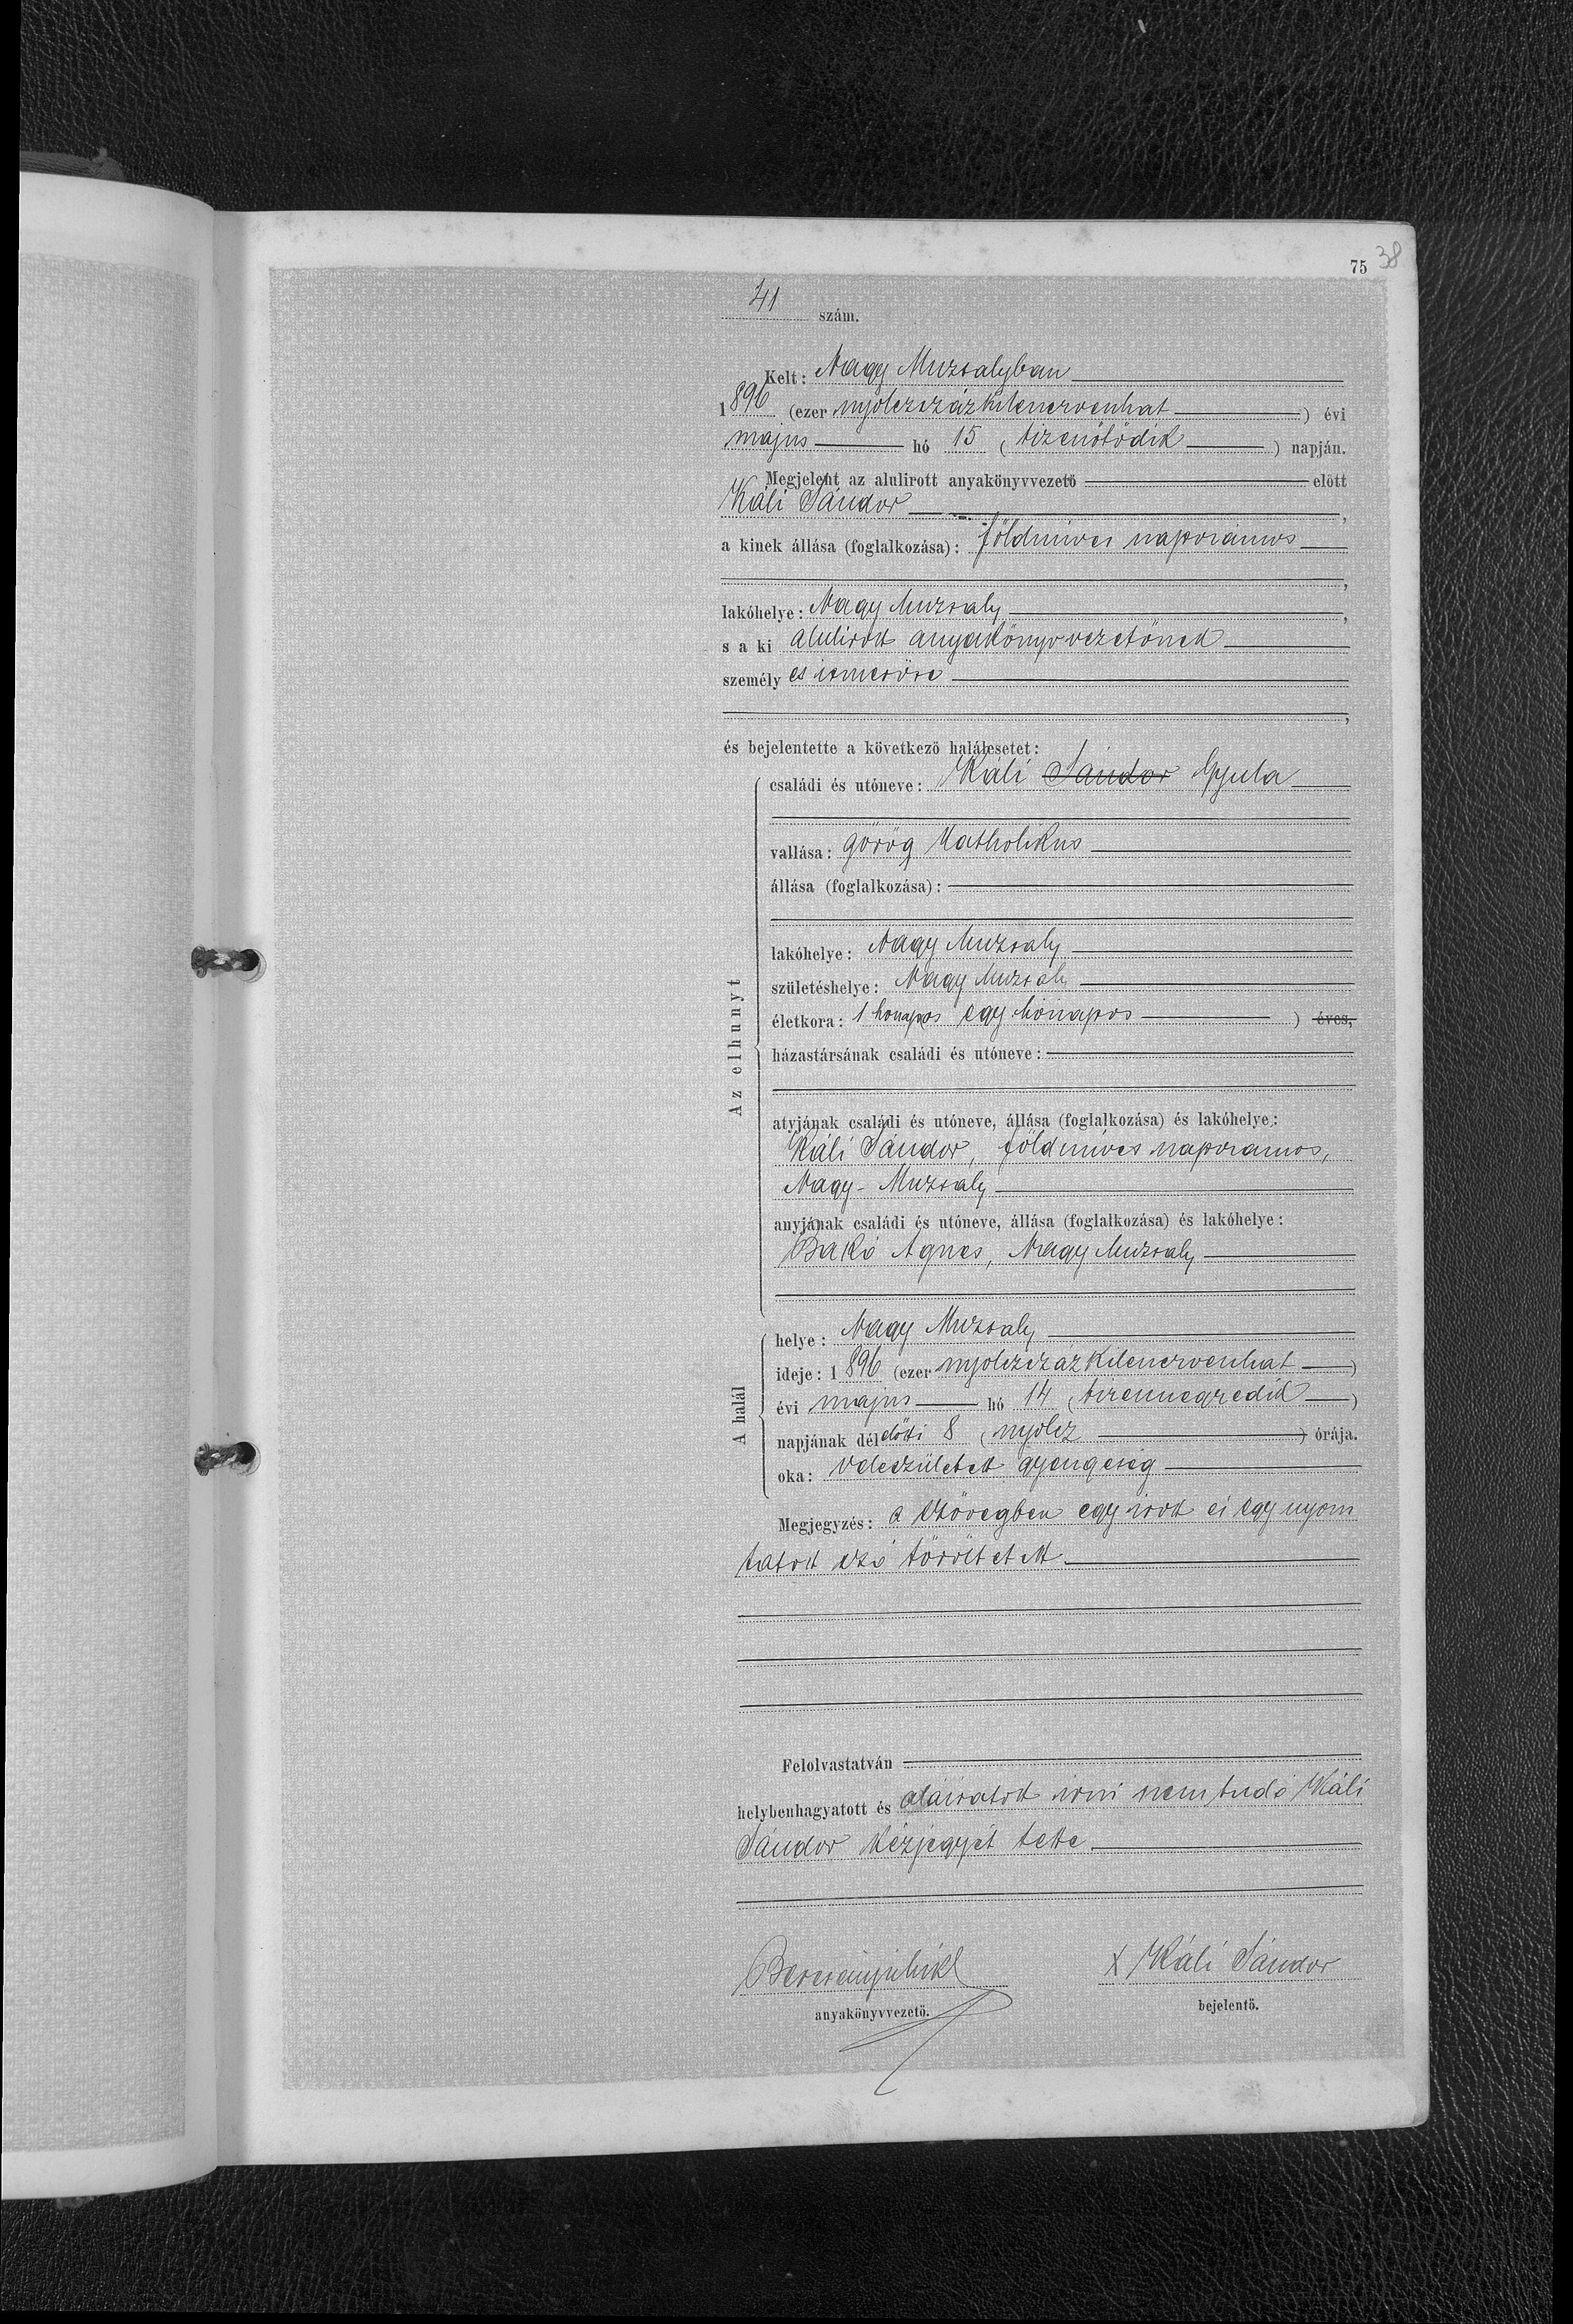 75 38
41 szám.
Kelt: Nagy Muzsalyban
1896 (ezer nyolczszázkilenczvenhat) évi
majus hó 15 (tizenötödik) napján.
Megjelent az alulirott anyakönyvvezető előtt
Káli Sándor,
a kinek állása (foglalkozása): földmives napszámos
,
lakóhelye: Nagy Muzsaly,
s a ki alulirott anyakönyvvezetőnek
személyes ismerőse
,
és bejelentette a következő halálesetet:
Az elhunyt
családi és utóneve: Káli Sándor Gyula
vallása: görög katholikus
állása (foglalkozása):
lakóhelye: Nagy Muzsaly
születéshelye: Nagy Muzsaly
életkora: 1 honapos egy hónapos ) éves,
házastársának családi és utóneve:
atyjának családi és utóneve, állása (foglalkozása) és lakóhelye:
Káli Sándor, földmives napszamos,
Nagy-Muzsaly
anyjának családi és utóneve, állása (foglalkozása) és lakóhelye:
Bakó Ágnes, Nagy Muzsaly
A halál
helye: Nagy Muzsaly
ideje: 1896 (ezer nyolczszázkilenczvenhat)
évi majus hó 14 (tizennegyedik)
napjának délelőtti 8 (nyolcz) órája.
oka: veleszületett gyengeség
Megjegyzés: a szövegben egy irott és egy nyom
tatott szó töröltetett
Felolvastatván
helybenhagyatott és aláiratott irni nem tudó Káli
Sándor kézjegyét tette
anyakönyvvezető.
x Káli Sándor
bejelentő.